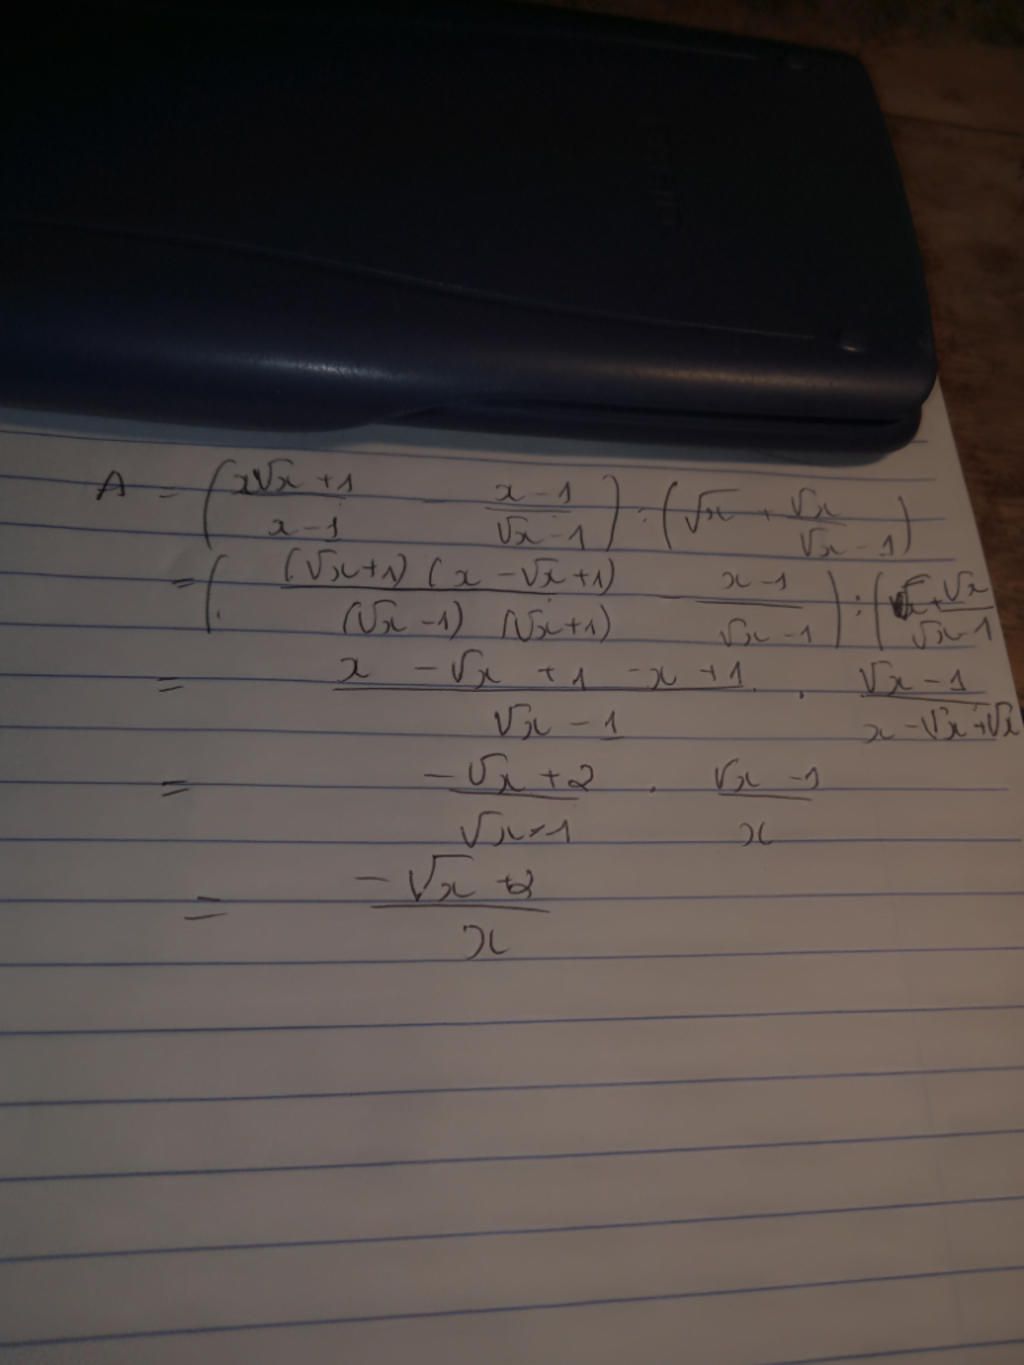 A = ( (x√x + 1)/(x - 1) - (x - 1)/(√x - 1) ) : ( √x + √x/(√x - 1) )
= ( (√x+1)(x - √x + 1)/((√x - 1)(√x + 1)) - (x - 1)/(√x - 1) ) : ( √x + √x/(√x - 1)
= (x - √x + 1 - x + 1)/(√x - 1) . (√x - 1)/(x - √x + √x)
= (-√x + 2)/(√x - 1) . (√x - 1)/x
= (-√x + 2)/x